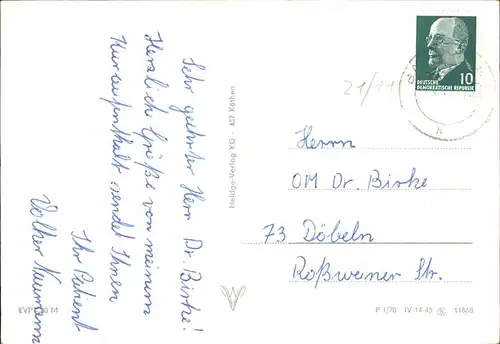 Sehr geehrter Herr Dr. Birke!
Herzliche Grüße von meinem
Kuraufenthalt sendet Ihnen
Ihr Patient
Volker Naumann
Heldge-Verlag KG · 437 Köthen
EVP
21/11
10
DEUTSCHE
DEMOKRATISCHE REPUBLIK
Herrn
OM Dr. Birke
73 Döbeln
Roßweiner Str.
P 1/70 IV-14-45 11860